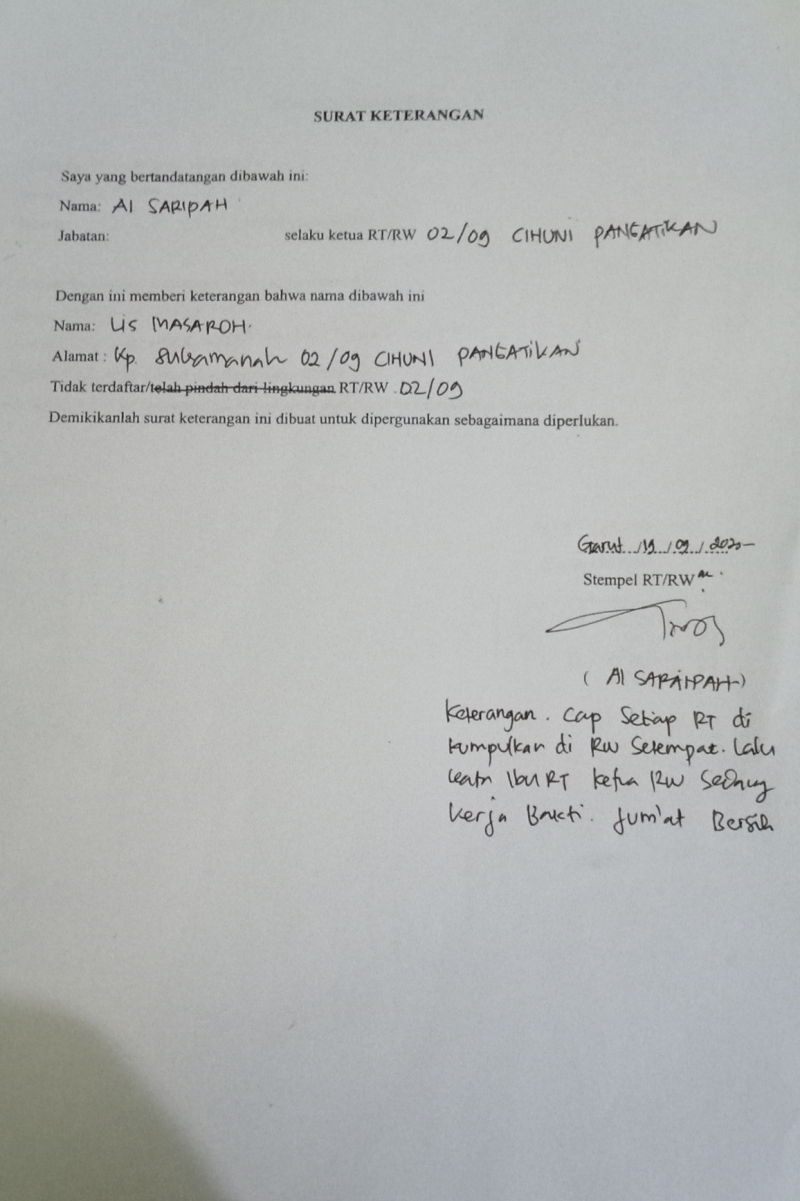 SURAT KETERANGAN
Saya yang bertandatangan dibawah ini:
Nama: AI SARIPAH
Jabatan: selaku ketua RT/RW 02/09 CIHUNI PANGATIKAN
Dengan ini memberi keterangan bahwa nama dibawah ini
Nama: LIS MASAROH.
Alamat : Kp. Sukamanah 02/09 CIHUNI PANGATIKAN
Tidak terdaftar/telah pindah dari lingkungan RT/RW .02/09
Demikikanlah surat keterangan ini dibuat untuk dipergunakan sebagaimana diperlukan.
Garut
Stempel RT/RW
( AI SARIPAH )
Keterangan. Cap Setiap RT di
kumpulkan di RW Setempat. Lalu
kata Ibu RT ketua RW Sedang
Kerja Bakti. Jum'at Bersih